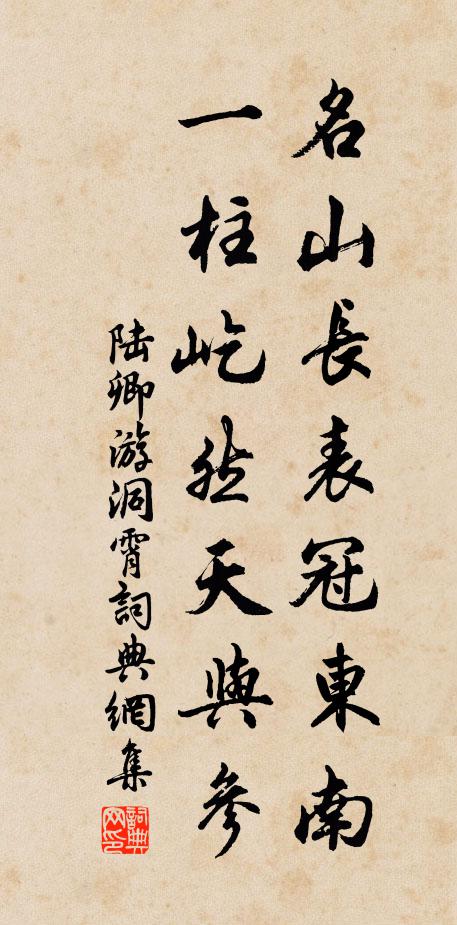 名山長表冠東南
一柱屹然天與參
陆卿游洞霄詞典網集
詞典网印